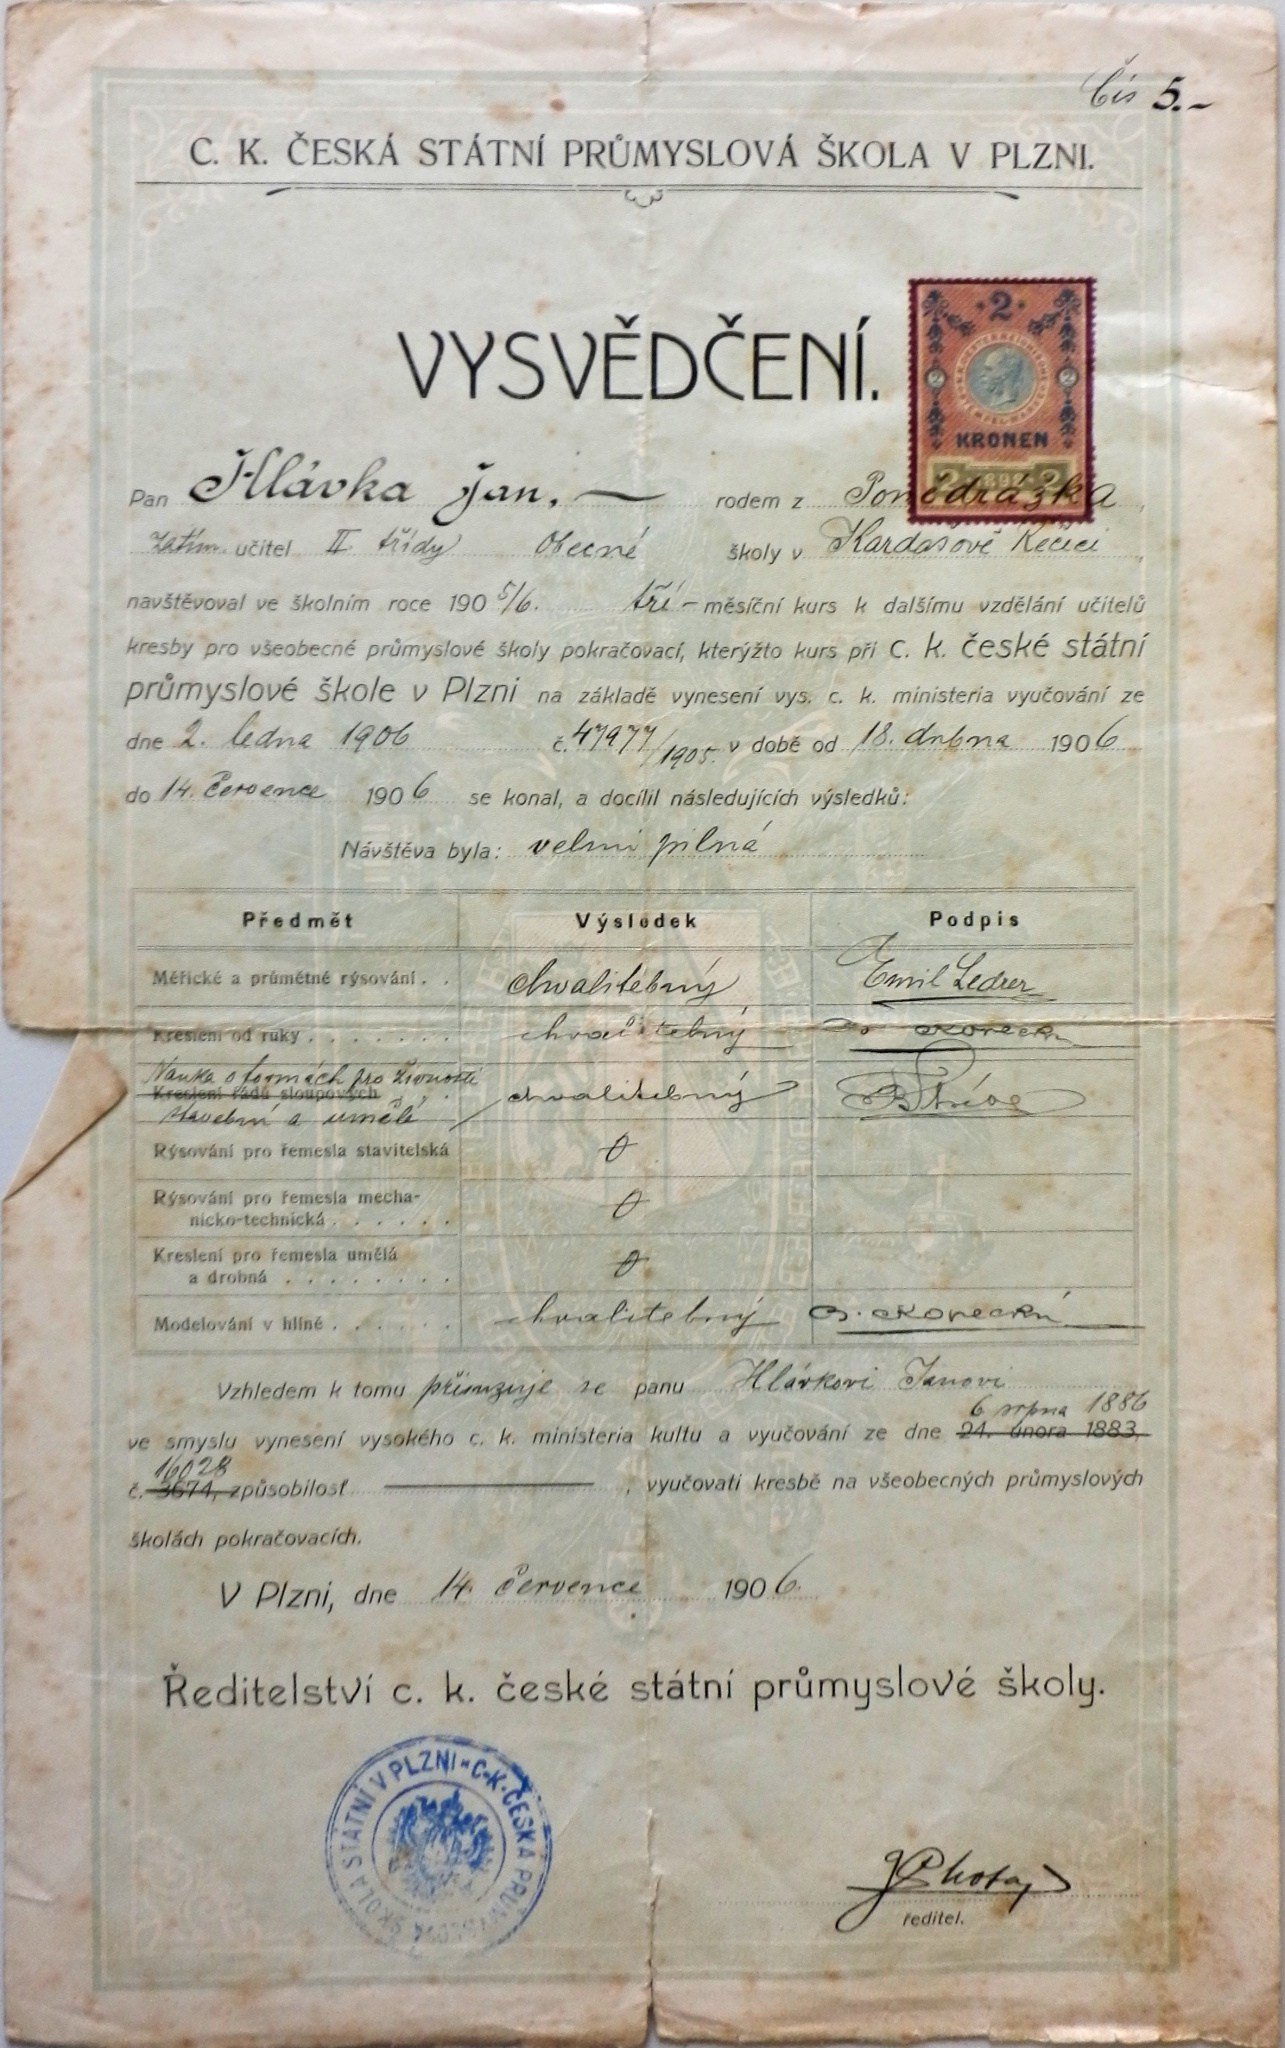 Čís 5.-
C. K. ČESKÁ STÁTNÍ PRŮMYSLOVÁ ŠKOLA V PLZNI.
VYSVĚDČENÍ.
2
2 2
KRONEN
2 1898 2
Pan Hlávka Jan. — rodem z Ponědrážka,
zatím. učitel II třídy Obecné školy v Kardašově Řečici,
navštěvoval ve školním roce 1905/6. tří-měsíční kurs k dalšímu vzdělání učitelů
kresby pro všeobecné průmyslové školy pokračovací, kterýžto kurs při c. k. české státní
průmyslové škole v Plzni na základě vynesení vys. c. k. ministeria vyučování ze
dne 2. ledna 1906 č. 47977/1905. v době od 18. dubna 1906
do 14. července 1906 se konal, a docílil následujících výsledků:
Návštěva byla: velmi pilná
Předmět Výsledek Podpis
Měřické a průmětné rýsování . . chvalitebný Emil Lederer
Kreslení od ruky . . . . . . . chvalitebný B. Skorecký
Nauka o formách pro živnosti
Kreslení řádů sloupových . . chvalitebný
stavební a umělé
Rýsování pro řemesla stavitelská 0
Rýsování pro řemesla mecha-
nicko-technická . . . . . . 0
Kreslení pro řemesla umělá
a drobná . . . . . . . . 0
Modelování v hlíně . . . . . . chvalitebný B. Skorecký
Vzhledem k tomu přisuzuje se panu Hlávkovi Janovi
6 srpna 1886
ve smyslu vynesení vysokého c. k. ministeria kultu a vyučování ze dne 24. února 1883,
16028
č. 3674, způsobilosť — , vyučovati kresbě na všeobecných průmyslových
školách pokračovacích.
V Plzni, dne 14. července 1906.
Ředitelství c. k. české státní průmyslové školy.
C. K. ČESKÁ PRŮMYSLOVÁ ŠKOLA STÁTNÍ V PLZNI
ředitel.